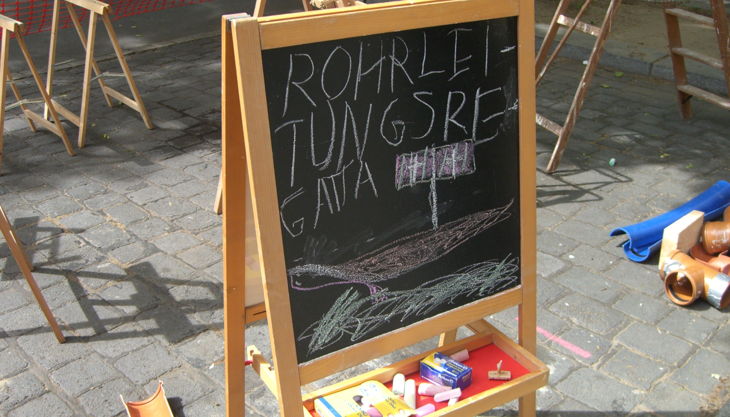 ROHRLEI
TUNGSRE
GATTA